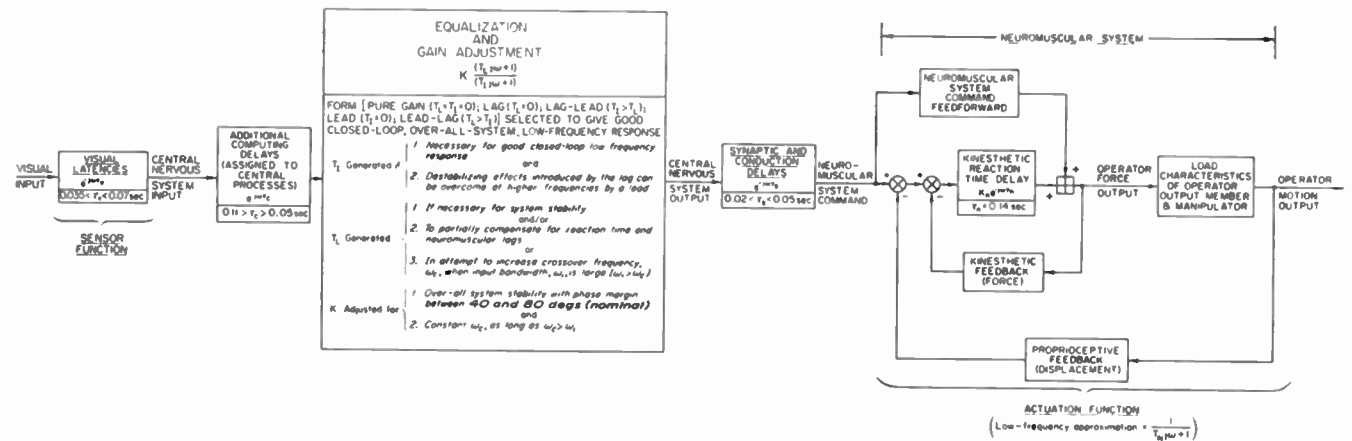 VISUAL
INPUT
VISUAL
LATENCIES
e^-jωτv
0.035 < τv < 0.07sec
SENSOR
FUNCTION
CENTRAL
NERVOUS
SYSTEM
INPUT
ADDITIONAL
COMPUTING
DELAYS
(ASSIGNED TO
CENTRAL
PROCESSES)
e^-jωτc
0.11 > τc > 0.05sec
EQUALIZATION
AND
GAIN ADJUSTMENT
K (TL jω+1)
(TI jω+1)
FORM [PURE GAIN (TL=TI=0); LAG (TL=0); LAG-LEAD (TI>TL);
LEAD (TI=0); LEAD-LAG (TL>TI)] SELECTED TO GIVE GOOD
CLOSED-LOOP, OVER-ALL-SYSTEM, LOW-FREQUENCY RESPONSE
TI Generated if
1. Necessary for good closed-loop low frequency
response
and
2. Destabilizing effects introduced by the lag can
be overcome at higher frequencies by a lead
TL Generated
1. If necessary for system stability
and/or
2. To partially compensate for reaction time and
neuromuscular lags
or
3. In attempt to increase crossover frequency,
ωc, when input bandwidth, ωi, is large (ωi > ωc)
K Adjusted for
1. Over-all system stability with phase margin
between 40 and 80 degs (nominal)
and
2. Constant ωc, as long as ωc > ωi
CENTRAL
NERVOUS
SYSTEM
OUTPUT
SYNAPTIC AND
CONDUCTION
DELAYS
e^-jωτs
0.02 < τs < 0.05sec
NEURO-
MUSCULAR
SYSTEM
COMMAND
NEUROMUSCULAR SYSTEM
NEUROMUSCULAR
SYSTEM
COMMAND
FEEDFORWARD
KINESTHETIC
REACTION
TIME DELAY
Kn e^-jωτn
τn = 0.14 sec
KINESTHETIC
FEEDBACK
(FORCE)
OPERATOR
FORCE
OUTPUT
LOAD
CHARACTERISTICS
OF OPERATOR
OUTPUT MEMBER
& MANIPULATOR
OPERATOR
MOTION
OUTPUT
PROPRIOCEPTIVE
FEEDBACK
(DISPLACEMENT)
ACTUATION FUNCTION
(Low-frequency approximation = 1 / TN jω+1)